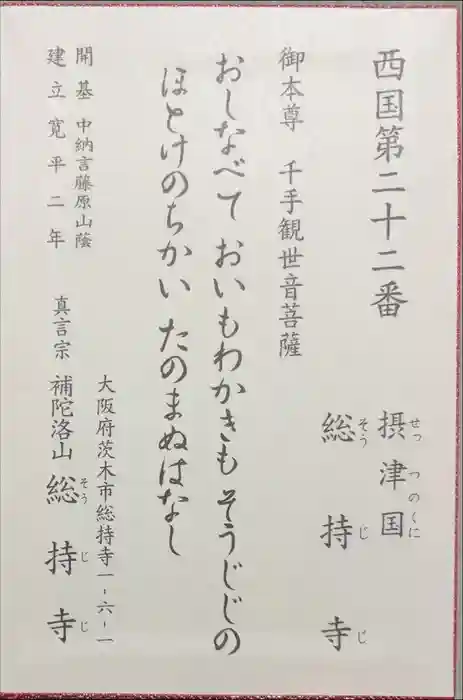 西国第二十二番
摂津国
せっつのくに
総持寺
そうじじ
御本尊 千手観世音菩薩
おしなべて おいもわかきも そうじじの
ほとけのちかい たのまぬはなし
大阪府茨木市総持寺一-六-一
開基 中納言藤原山蔭
建立寛平二年 真言宗 補陀洛山 総持寺
そうじじ